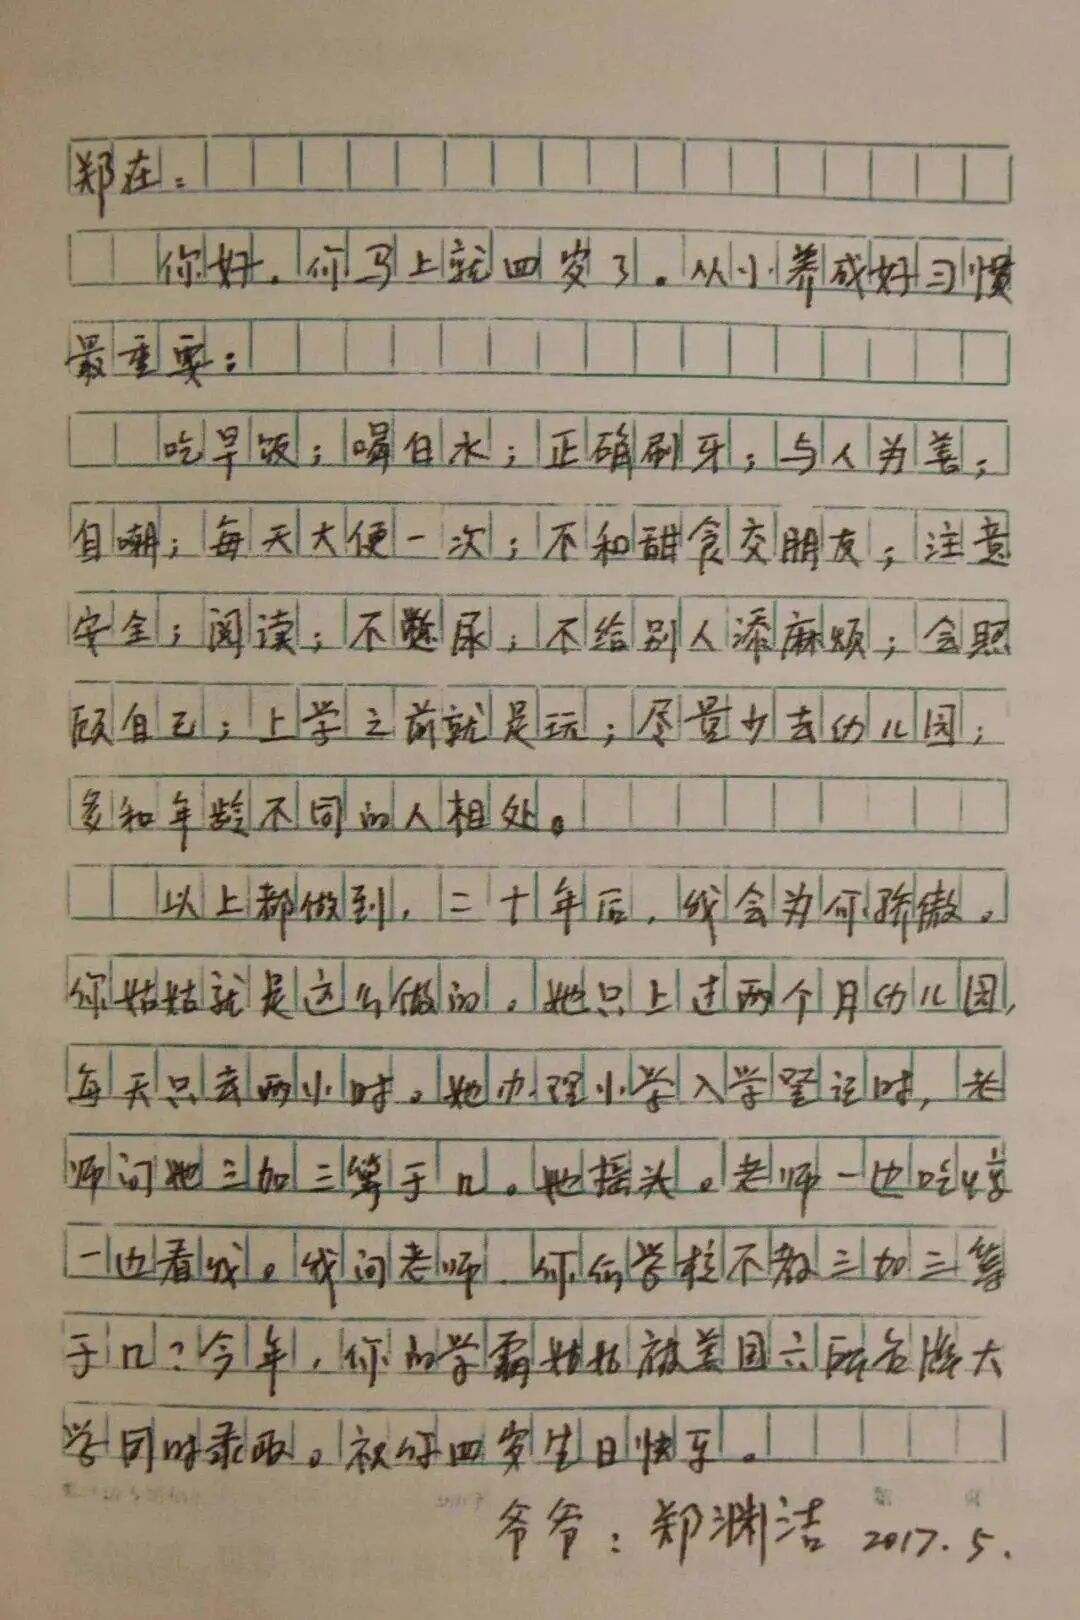 郑在：
你好。你马上就四岁了。从小养成好习惯
最重要：
吃早饭；喝白水；正确刷牙；与人为善；
自嘲；每天大便一次；不和甜食交朋友；注意
安全；阅读；不憋尿；不给别人添麻烦；会照
顾自己；上学之前就是玩；尽量少去幼儿园；
多和年龄不同的人相处。
以上都做到，二十年后，我会为你骄傲。
你姑姑就是这么做的。她只上过两个月幼儿园，
每天只去两小时。她办理小学入学登记时，老
师问她三加三等于几。她摇头。老师一边吃惊
一边看我。我问老师，你们学校不教三加三等
于几？今年，你的学霸姑姑被美国六所名牌大
学同时录取。祝你四岁生日快乐。
爷爷：郑渊洁 2017.5.